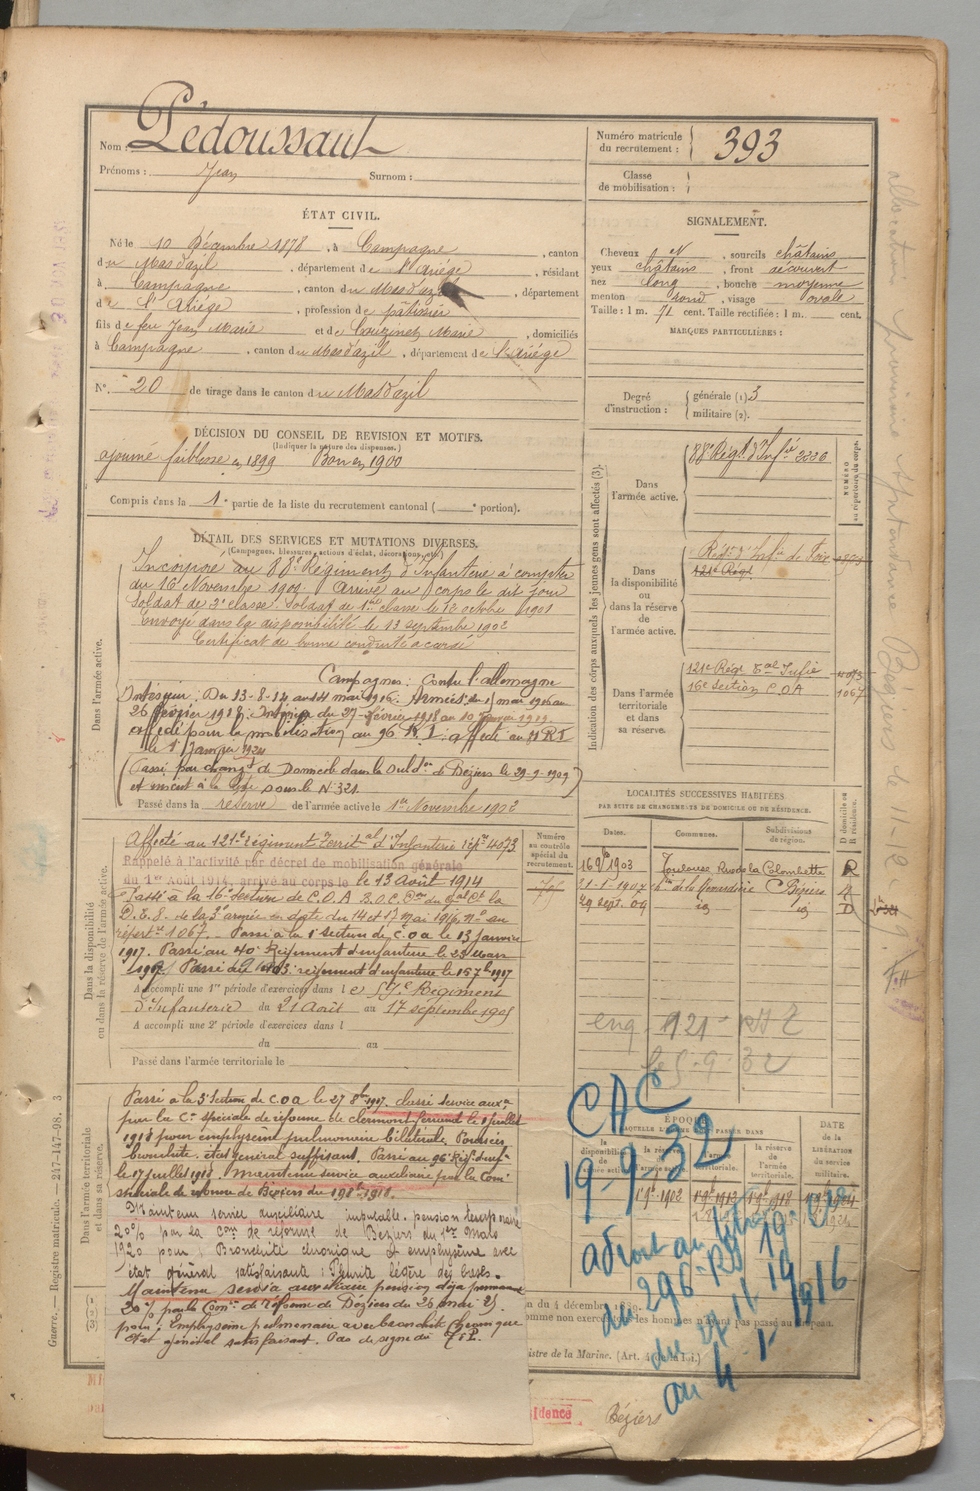 Nom : Pédoussaut
Prénoms : Jean Surnom :
Numéro matricule du recrutement : 393
Classe de mobilisation :
ÉTAT CIVIL.
Né le 10 Décembre 1878, à Campagne, canton
du Mas d'azil, département de l'Ariége, résidant
à Campagne, canton du Mas d'azil, département
de l'Ariége, profession de pâtissier
fils de feu Jean Marie et de Couzinet Marie, domiciliés
à Campagne, canton du Mas d'azil, département de l'Ariége
N° 20 de tirage dans le canton du Mas d'azil
SIGNALEMENT.
Cheveux N, sourcils châtains
yeux châtains, front découvert
nez long, bouche moyenne
menton rond, visage ovale
Taille : 1 m. 71 cent. Taille rectifiée : 1 m. cent.
MARQUES PARTICULIÈRES :
Degré d'instruction : générale (1) 3
militaire (2).
DÉCISION DU CONSEIL DE REVISION ET MOTIFS.
(Indiquer la nature des dispenses.)
ajourné faiblesse en 1899 Bon en 1900
Compris dans la 1e partie de la liste du recrutement cantonal ( portion).
DÉTAIL DES SERVICES ET MUTATIONS DIVERSES.
(Campagnes, blessures, actions d'éclat, décorations, etc.)
Dans l'armée active.
Incorporé au 88e Régiment d'Infanterie à compter
du 16 Novembre 1901. Arrivé au corps le dit jour
Soldat de 2e classe. Soldat de 1re classe le 12 octobre 1901
Envoyé dans la disponibilité le 13 septembre 1902
Certificat de bonne conduite accordé
Campagnes : Contre l'allemagne
Intérieur : Du 13-8-14 au 14 mai 1916. Armées : du 15 mai 1916 au
26 février 1918 : Intérieur du 27 février 1918 au 10 janvier 1919.
affecté pour la mobilisation au 96 R.I. affecté au 81 RI
le 1er Janvier 1924
(Passé par changt de Domicile dans la Subdon de Béziers le 29-9-1909
et inscrit à la liste sous le N° 321
Passé dans la réserve de l'armée active le 1er Novembre 1902
Indication des corps auxquels les jeunes gens sont affectés (3).
NUMÉRO au répertoire du corps.
Dans l'armée active.
88e Régt d'Infie 2226
Dans la disponibilité ou dans la réserve de l'armée active.
Résve d'Infie de Foix
121e Régt
Dans l'armée territoriale et dans sa réserve.
121e Régt Tal Infie 4073
16e Section C O A 1067
LOCALITÉS SUCCESSIVES HABITÉES
PAR SUITE DE CHANGEMENTS DE DOMICILE OU DE RÉSIDENCE.
Dates. Communes. Subdivisions de région. Domicile ou Résidence.
16 9bre 1903 Toulouse Rue de la Colombette R
21-1-1907 Béziers
29 sept. 09 id id D
Dans la disponibilité ou dans la réserve de l'armée active.
Numéro au contrôle spécial du recrutement.
Affecté au 121e Régiment Territal d'Infanterie répre 4073
Rappelé à l'activité par décret de mobilisation générale
du 1er Août 1914, arrivé au corps le 13 Août 1914
Passé à la 16e Section de C.O.A. 
D.E.S. de la 3e armée en date du 14 et 15 Mai 1916, No au
répertre 1067. Passé à la 1e section de C.O.A. le 13 Janvier
1917. Passé au 40e Régiment d'infanterie le 23 Mars
1917. Passé au 103e régiment d'infanterie le 15 7bre 1917
A accompli une 1re période d'exercices dans le 59e Régiment
d'Infanterie du 21 Août au 17 septembre 1905
A accompli une 2e période d'exercices dans l
du au
Passé dans l'armée territoriale le
Dans l'armée territoriale et dans sa réserve.
Passé à la 3e Section de C.O.A. le 27 8bre 1917. classé service auxre
par la Con spéciale de réforme de Clermont Ferrand le 1 juillet
1918 pour emphysème pulmonaire bilatérale. Poussées
bronchite. état général suffisant. Passé au 96e Régt d'inf.
le 17 juillet 1918. Maintenu service auxiliaire par la Com.
spéciale de réforme de Béziers du 19 8bre 1918.
Maintenu service auxiliaire, imputable. pension temporaire
20% par la Con de réforme de Béziers du 1er Mars
1920 pour : Bronchite chronique et emphysème avec
état général satisfaisant : Pleurite légère des bases.
Maintenu service auxiliaire pension déjà permanente
20% par la Con de réforme de Béziers du 26 mai 25
pour : Emphysème pulmonaire avec bronchite chronique
État général satisfaisant. Pas de signe de T.P.
eng 121 RIT
le 5-9-32
CAC
19-9-32
ÉPOQUE
DATE de la LIBÉRATION du service militaire.
1 9bre 1902 1 9bre 1912 1 9bre 1918
a droit au titre de
296 RI
du 27 11 14
au 4-1-1916
istre de la Marine. (Art. 4 de la loi.)
idence
Béziers
Guerre. — Registre matricule. 247-147-98. 3
allocation provisoire Intendance Béziers le 11-12